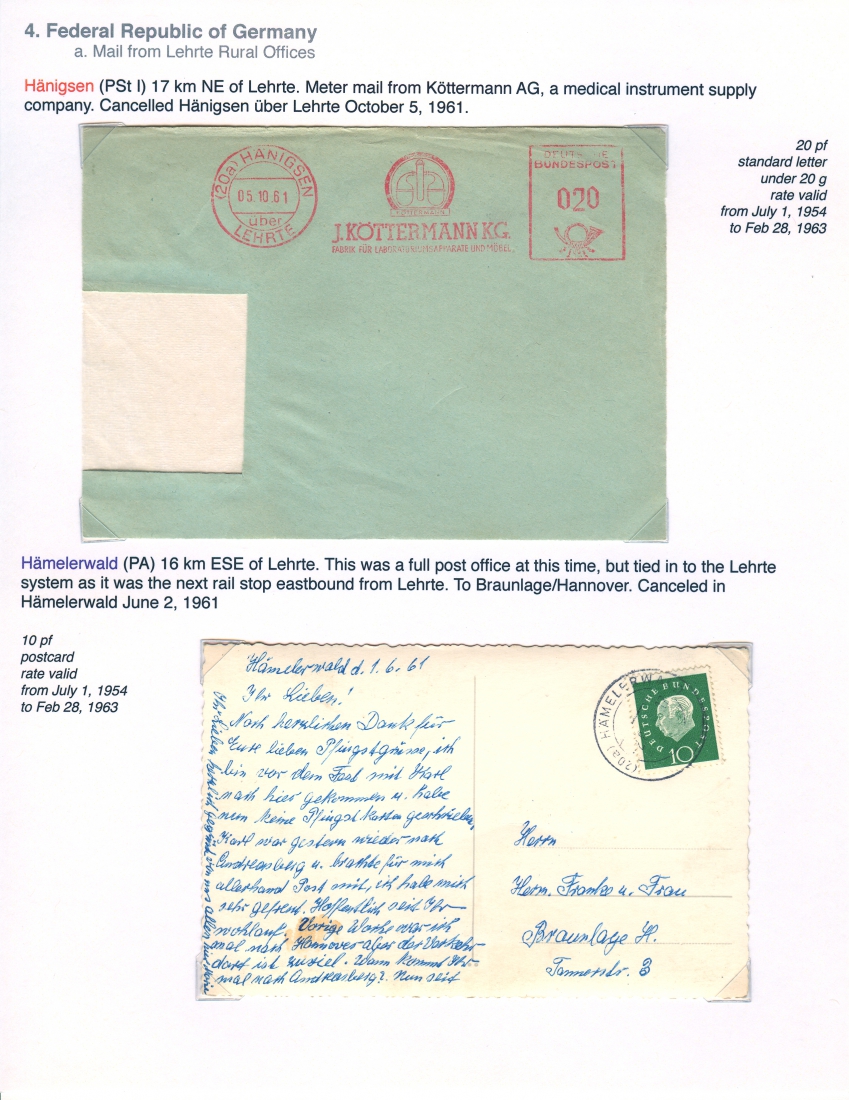 4. Federal Republic of Germany
a. Mail from Lehrte Rural Offices
Hänigsen (PSt I) 17 km NE of Lehrte. Meter mail from Köttermann AG, a medical instrument supply
company. Cancelled Hänigsen über Lehrte October 5, 1961.
20 pf
standard letter
under 20 g
rate valid
from July 1, 1954
to Feb 28, 1963
(20a) HÄNIGSEN
05.10.61
über
LEHRTE
KÖTTERMANN
J. KÖTTERMANN KG.
FABRIK FÜR LABORATORIUMSAPPARATE UND MÖBEL
DEUTSCHE
BUNDESPOST
020
Hämelerwald (PA) 16 km ESE of Lehrte. This was a full post office at this time, but tied in to the Lehrte
system as it was the next rail stop eastbound from Lehrte. To Braunlage/Hannover. Canceled in
Hämelerwald June 2, 1961
10 pf
postcard
rate valid
from July 1, 1954
to Feb 28, 1963
Hämelerwald d. 1.6.61
Ihr Lieben!
Noch herzlichen Dank für
Eure lieben Pfingstgrüsse, ich
bin vor dem Fest mit Karl
nach hier gekommen u. habe
nun keine Pfingstkarten geschrieben,
Karl war gestern wieder nach
Andreasberg u. brachte für mich
allerhand Post mit, ich habe mich
sehr gefreut. Hoffentlich seit Ihr
wohlauf. Vorige Woche war ich
mal nach Hannover aber der Verkehr
dort ist zuviel. Wann kommt Ihr
mal nach Andreasberg? Nun seit
Ihr Lieben herzlich gegrüßt von uns allen
(20a) HÄMELERWA
DEUTSCHE BUNDESPOST
10
Herrn
Herm. Franke u. Frau
Braunlage H.
Tannerstr. 3